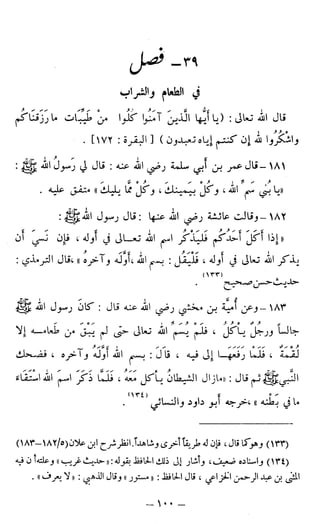 ٣٩ - فصل
في الطعام والشراب
قال الله تعالى : ( يا أيُّها الَّذينَ آمَنُوا كُلُوا مِنْ طَيِّبَاتِ مارَزَقْنَاكُم
واشْكُرُوا لله إن كنتم إياه تعبدون ) [ البقرة : ١٧٢ ] .
١٨١ - قال عمر بن أبي سلمة رضي الله عنه : قال لي رَسولُ الله ﷺ :
« يا بُني سَمِّ الله ، وكُلْ بيمينكَ ، وكُلْ ممَّا يليكَ » متفق عليه .
١٨٢ - وقالت عائشة رضي الله عنها : قال رسول الله ﷺ :
« إذا أكَلَ أحَدُكُم فَليَذْكُر اسم الله تعـالى في أوله ، فإن نسيَ أن
يذكر الله تعالى في أوله ، فَلْيَقُلْ : بسم الله ، أوَّلَه وآخرَهُ » ، قال الترمذي :
حديث حسن صحيح (١٣٣) .
١٨٣ - وعن أُميَّة بن مخشي رضي الله عنه قال : كانَ رسول الله ﷺ
جالساً ورجُلٌ يأكُلُ ، فلَمْ يُسَمِّ الله تعالى حتى لم يَبْقَ من طعامـه إلا
لُقمَةٌ ، فلَمَّا رَفَعَهـا إلى فيه ، قالَ : بسم الله أوَّلَهُ وآخره ، فضحك
النَّبيُّ ﷺ ثم قال : « مازالَ الشيطانُ يأكلُ مَعَهُ ، فلمَّا ذَكَرَ اسمَ الله استَقاءَ
ما في بَطْنه » ، خرجه أبو داود والنسائي (١٣٤) .
(١٣٣) وهو كما قال ، فإن له طريقاً أخرى وشاهداً . انظر شرح ابن علان (١٨٢/٥-١٨٣)
(١٣٤) واسناده ضعيف ، وأشار إلى ذلك الحافظ بقوله : « حديث غريب » وعلته أن فيه
المثنى بن عبد الرحمن الخزاعي ، قال الحافظ : « مستور » وقال الذهبي : « لا يعرف » .
- ١٠٠ -